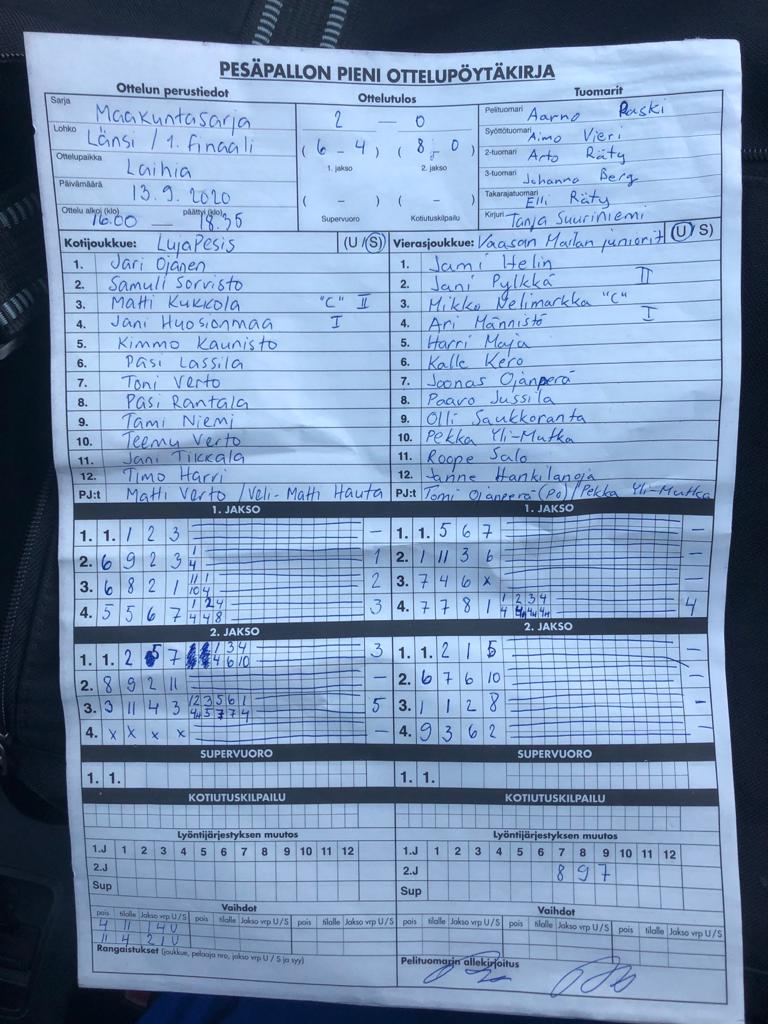 PESÄPALLON PIENI OTTELUPÖYTÄKIRJA
Ottelun perustiedot
Sarja Maakuntasarja
Lohko Länsi / 1. finaali
Ottelupaikka Laihia
Päivämäärä 13.9.2020
Ottelu alkoi (klo) 16.00 — päättyi (klo) 18.35
Ottelutulos
2 — 0
( 6 - 4 ) ( 8 - 0 )
1. jakso 2. jakso
( - ) ( - )
Supervuoro Kotiutuskilpailu
Tuomarit
Pelituomari Aarno Paski
Syöttötuomari Aimo Vieri
2-tuomari Arto Räty
3-tuomari Johanna Berg
Takarajatuomari Elli Räty
Kirjuri Tanja Suuriniemi
Kotijoukkue: LujaPesis (U / S)
1. Jari Ojanen
2. Samuli Sorvisto
3. Matti Kukkola "C" II
4. Jani Huosionmaa I
5. Kimmo Kaunisto
6. Pasi Lassila
7. Toni Verto
8. Pasi Rantala
9. Tami Niemi
10. Teemu Verto
11. Jani Tikkala
12. Timo Harri
PJ:t Matti Verto / Veli-Matti Hauta
Vierasjoukkue: Vaasan Mailan juniorit (U / S)
1. Jami Helin
2. Jani Pylkkä II
3. Mikko Velimarkka "C"
4. Ari Männistö I
5. Harri Maja
6. Kalle Kero
7. Joonas Ojanperä
8. Paavo Jussila
9. Olli Saukkoranta
10. Pekka Yli-Mutka
11. Roope Salo
12. Janne Hankilanoja
PJ:t Tomi Ojanperä (PJ) / Pekka Yli-Mutka
1. JAKSO
1. 1. 1 2 3 —
2. 6 9 2 3 1 4 1
3. 6 8 2 1 11 1 10 4 2
4. 5 5 6 7 1 2 4 4 4 8 3
1. JAKSO
1. 1. 5 6 7 —
2. 1 11 3 6 —
3. 7 4 6 x —
4. 7 7 8 1 1 2 3 4 4
2. JAKSO
1. 1. 2 5 7 1 3 4 4 6 10 3
2. 8 9 2 11 —
3. 3 11 4 3 12 3 5 6 1 5
4. x x x x —
2. JAKSO
1. 1. 2 1 5 —
2. 6 7 6 10 —
3. 1 1 2 8 —
4. 9 3 6 2 —
SUPERVUORO
1. 1.
SUPERVUORO
1. 1.
KOTIUTUSKILPAILU
KOTIUTUSKILPAILU
Lyöntijärjestyksen muutos
1.J 1 2 3 4 5 6 7 8 9 10 11 12
2.J
Sup
Lyöntijärjestyksen muutos
1.J 1 2 3 4 5 6 7 8 9 10 11 12
2.J 8 9 7
Sup
Vaihdot
pois tilalle Jakso vrp U / S pois tilalle Jakso vrp U / S pois tilalle Jakso vrp U / S
4 11 1 4 U
11 4 2 1 U
Vaihdot
pois tilalle Jakso vrp U / S pois tilalle Jakso vrp U / S pois tilalle Jakso vrp U / S
Rangaistukset (joukkue, pelaaja nro, jakso vrp U / S ja syy)
Pelituomarin allekirjoitus